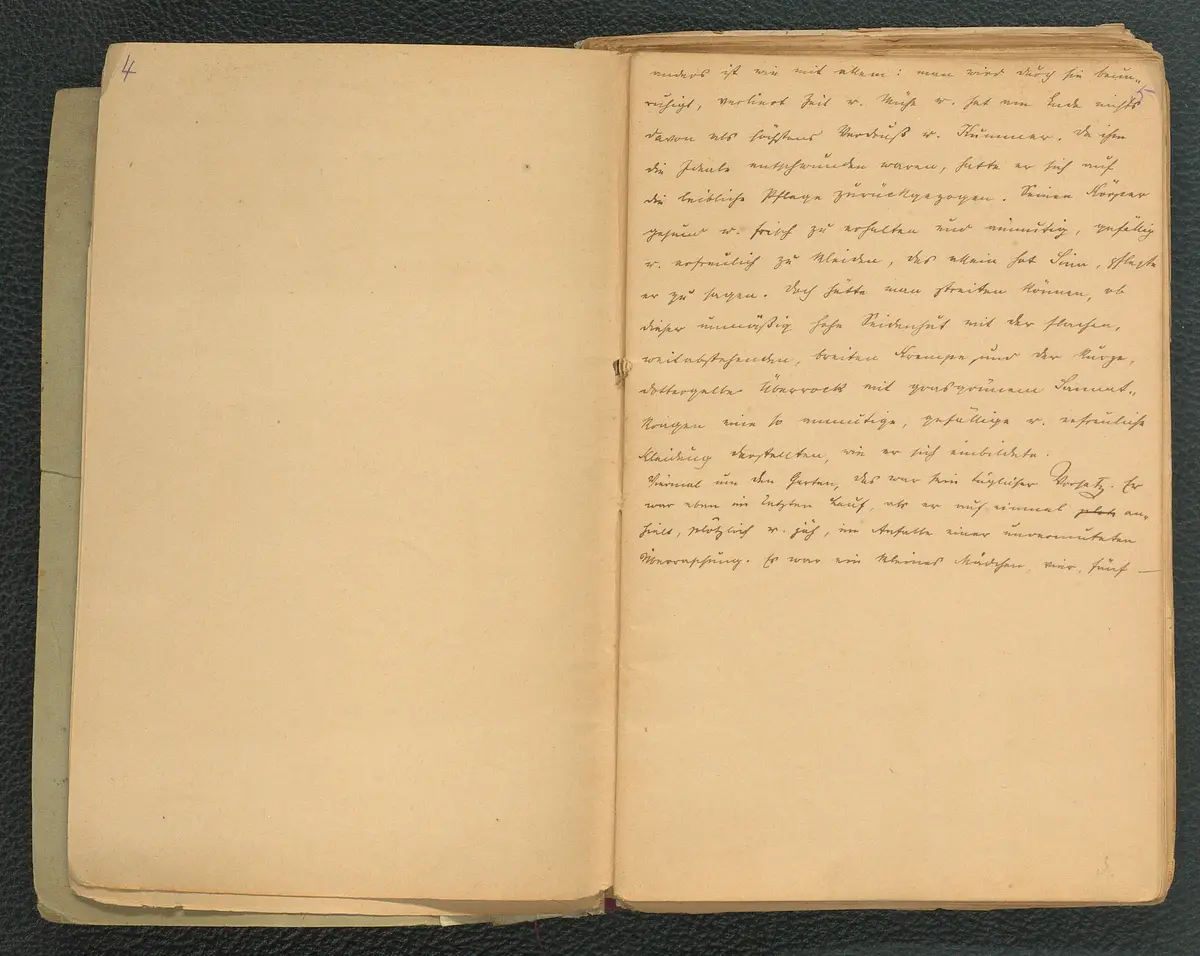 4
5
anders ist wie mit allem: man wird durch sie beun-
ruhigt, verliert Zeit u. Mühe u. hat am Ende nichts
davon als höchstens Verdruß u. Kummer. Da ihm
die Ideale entschwunden waren, hatte er sich auf
die leibliche Pflege zurückgezogen. Seinen Körper
gesund u. frisch zu erhalten und anmutig, gefällig
u. erfreulich zu kleiden, das allein hat Sinn, pflegte
er zu sagen. Doch hätte man streiten können, ob
dieser unmäßig hohe Seidenhut mit der flachen,
weitabstehenden, breiten Krempe und der kurze,
dottergelbe Überrock mit grasgrünem Sammet-
kragen eine so anmutige, gefällige u. erfreuliche
Kleidung darstellten, wie er sich einbildete.
Viermal um den Garten, das war sein täglicher Vorsatz. Er
war eben im letzten Lauf, als er auf einmal plötz an-
hielt, plötzlich u. jäh, im Anfalle einer unvermuteten
Überraschung. Es war ein kleines Mädchen, vier, fünf —
3.